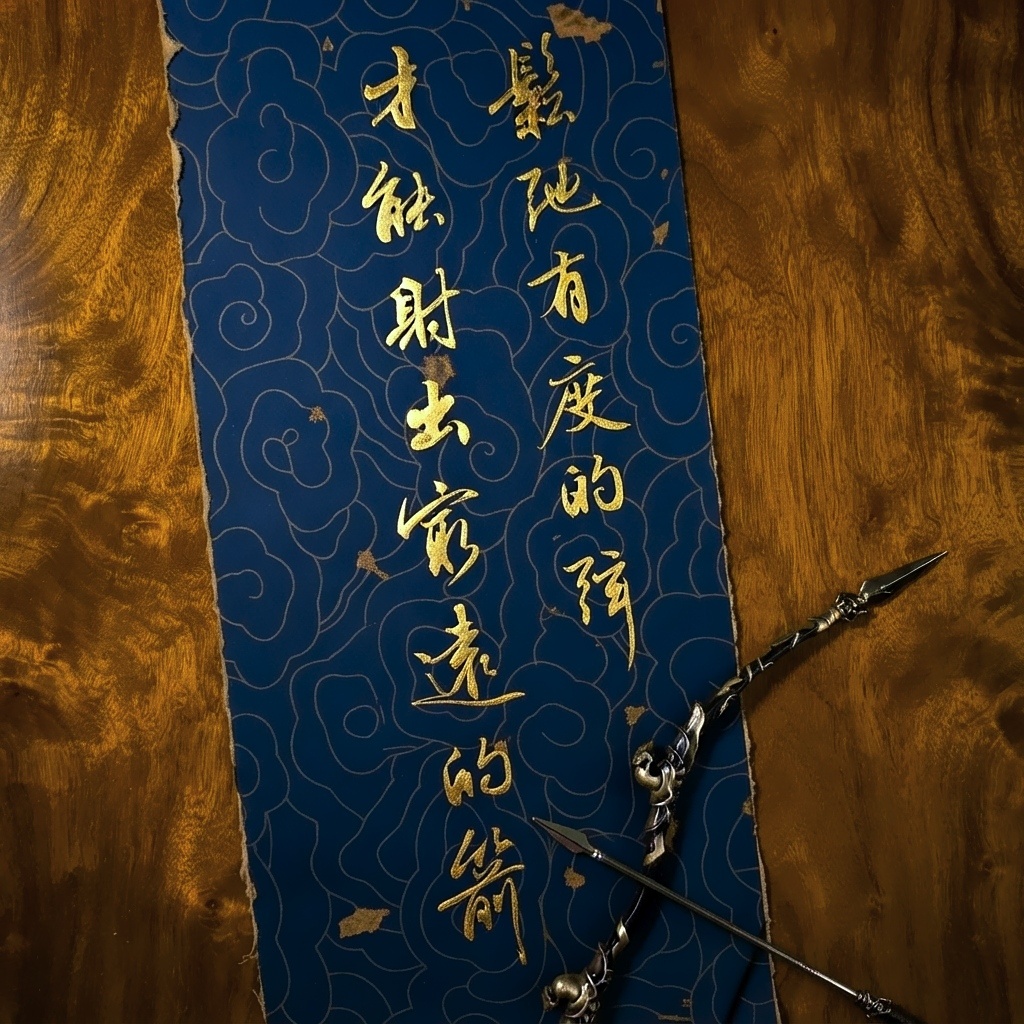 鬆弛有度的弦
才能射出最遠的箭